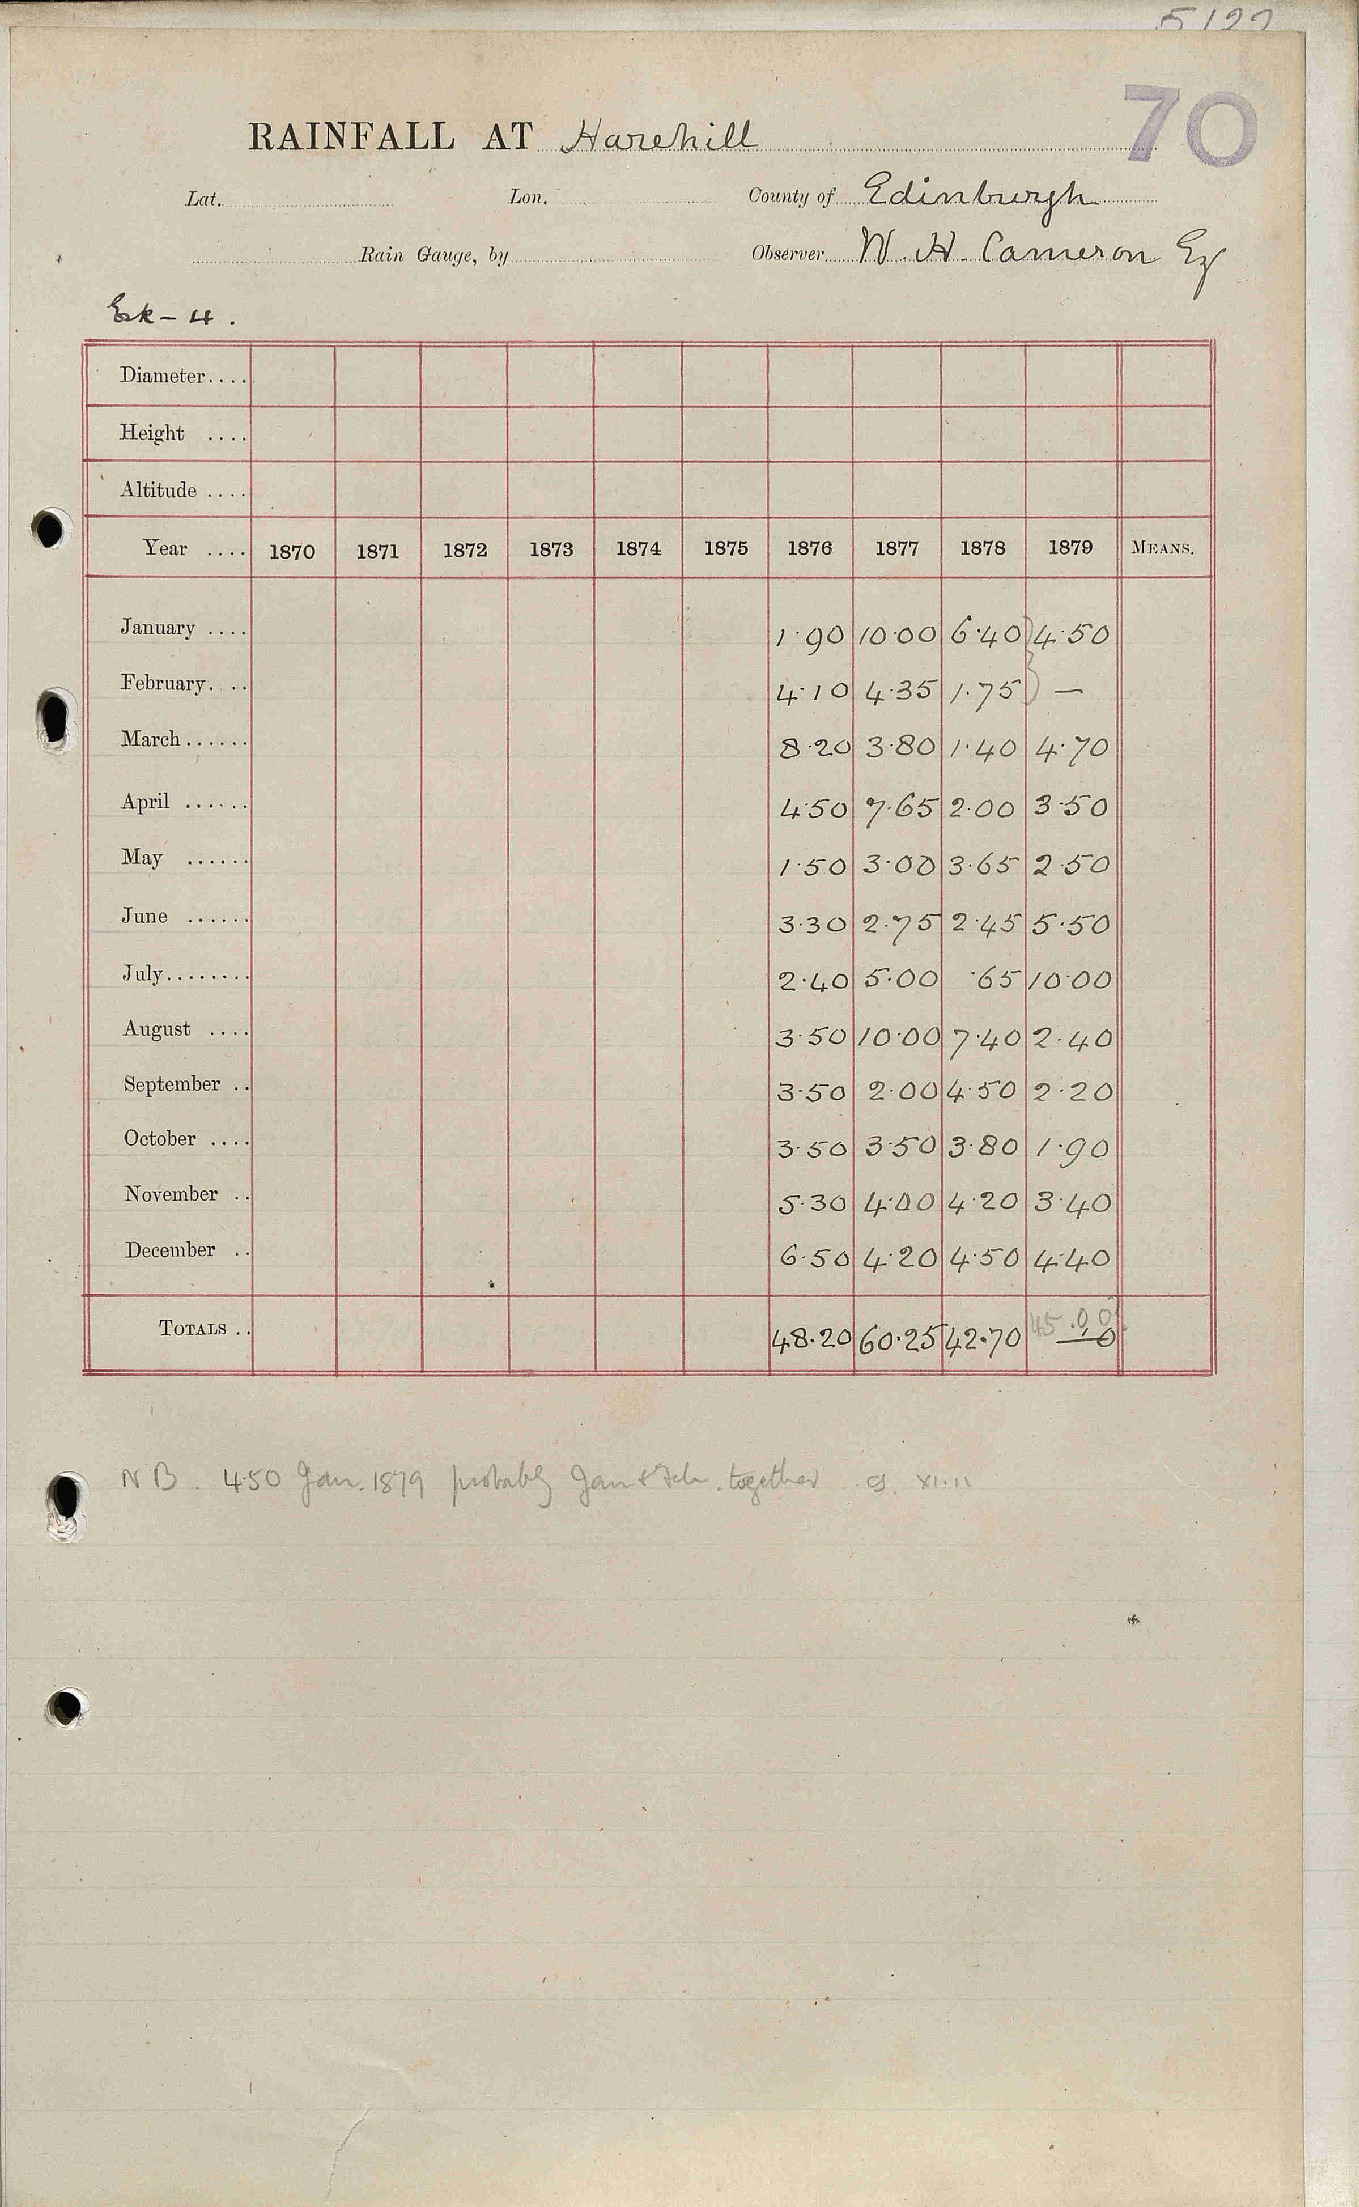 70
RAINFALL AT Harehill
Lat. Lon. County of Edinburgh
Rain Gauge, by Observer W. H. Cameron Esq
Esk - 4.
Diameter....
Height ....
Altitude ....
Year .... 1870 1871 1872 1873 1874 1875 1876 1877 1878 1879 MEANS.
January .... 1.90 10.00 6.40 4.50
February. .. 4.10 4.35 1.75 —
March...... 8.20 3.80 1.40 4.70
April ...... 4.50 7.65 2.00 3.50
May ...... 1.50 3.00 3.65 2.50
June ...... 3.30 2.75 2.45 5.50
July........ 2.40 5.00 .65 10.00
August .... 3.50 10.00 7.40 2.40
September .. 3.50 2.00 4.50 2.20
October .... 3.50 3.50 3.80 1.90
November .. 5.30 4.00 4.20 3.40
December .. 6.50 4.20 4.50 4.40
TOTALS .. 48.20 60.25 42.70 45.00
NB. 4.50 Jan. 1879 probably Jan & Feb. together XI.11